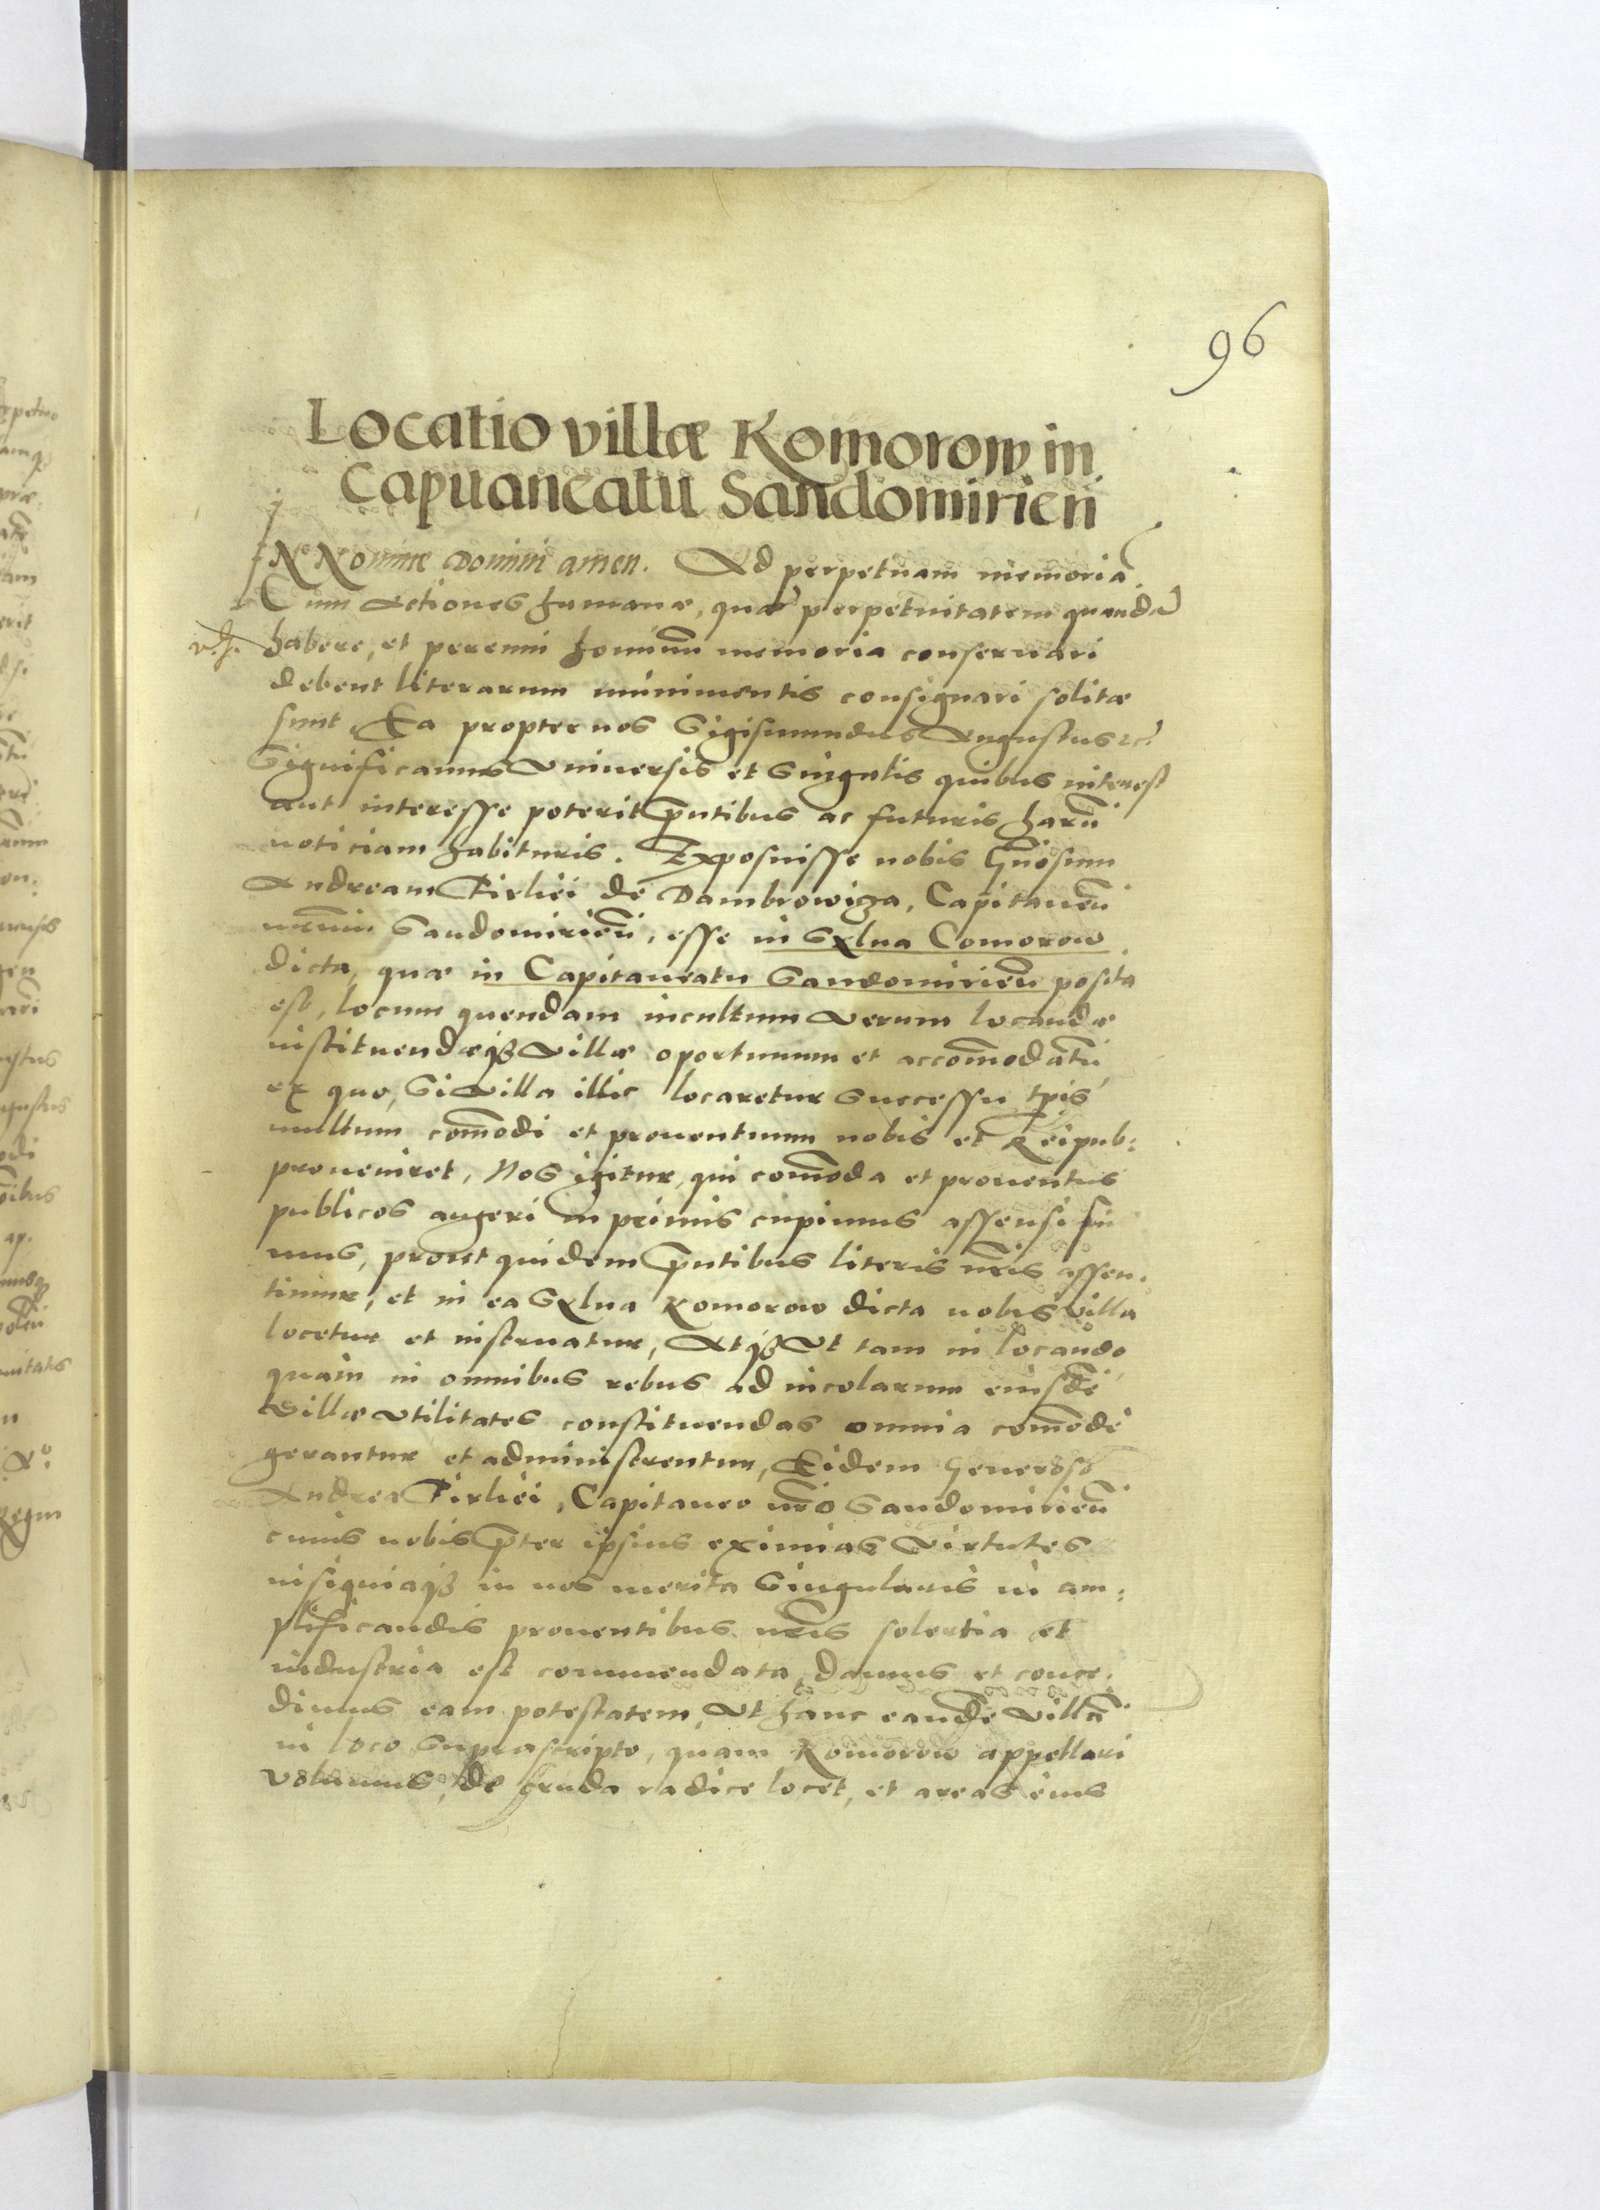 96
Locatio villæ Komorow in
Capitaneatu Sandomirien̄
IN Nomine Domini amen. Ad perpetuam memoriā.
Cum Actiones humanæ, quæ perpetuitatem quandā
habere, et perenni hominū memoria conseruari
debent literarum munimentis consignari solitæ
sunt, Ea propter nos Sigismundus Augustus etc.
Significamus Vniuersis et Singulis quibus interest
aut interesse poterit pn̄tibus ac futuris harū
noticiam habituris. Exposuisse nobis Gn̄osum
Andream Firliei de Dambrowiza, Capitaneū
nr̄um Sandomirien̄, esse in Sylua Comorow
dicta, quæ in Capitaneatu Sandomirien̄ posita
est, locum quendam incultum Verum locandæ
instituendæq3 Villæ oportunum et accom̄odatū
ex quo, Si Villa illic locaretur Successu tp̄is
multum com̄odi et prouentuum nobis et Reipub:
proueniret, Nos igitur, qui com̄oda et prouentus
publicos augeri in primis cupimus assensi su
mus, prout quidem pn̄tibus literis nr̄is assen,
timur, et in ea Sylua Komorow dicta nobis Villa
locetur et instruatur, Atq3 Vt tam in locando
quam in omnibus rebus ad incolarum eiusdē
Villæ Vtilitates constituendas omnia com̄ode
gerantur et administrentur, Eidem Generoso
Andreæ Firliei, Capitaneo nr̄o Sandomirien̄
cuius nobis pr̄ter ipsius eximias Virtutes
insigniaq3 in nos merita Singularis in am:
plificandis prouentibus nr̄is solertia et
industria est commendata, damus et conce,
dimus eam potestatem, Vt hanc eandē Villā
in loco Suprascripto, quam Komorow appellari
Volumus, de cruda radice locet, et areas eius